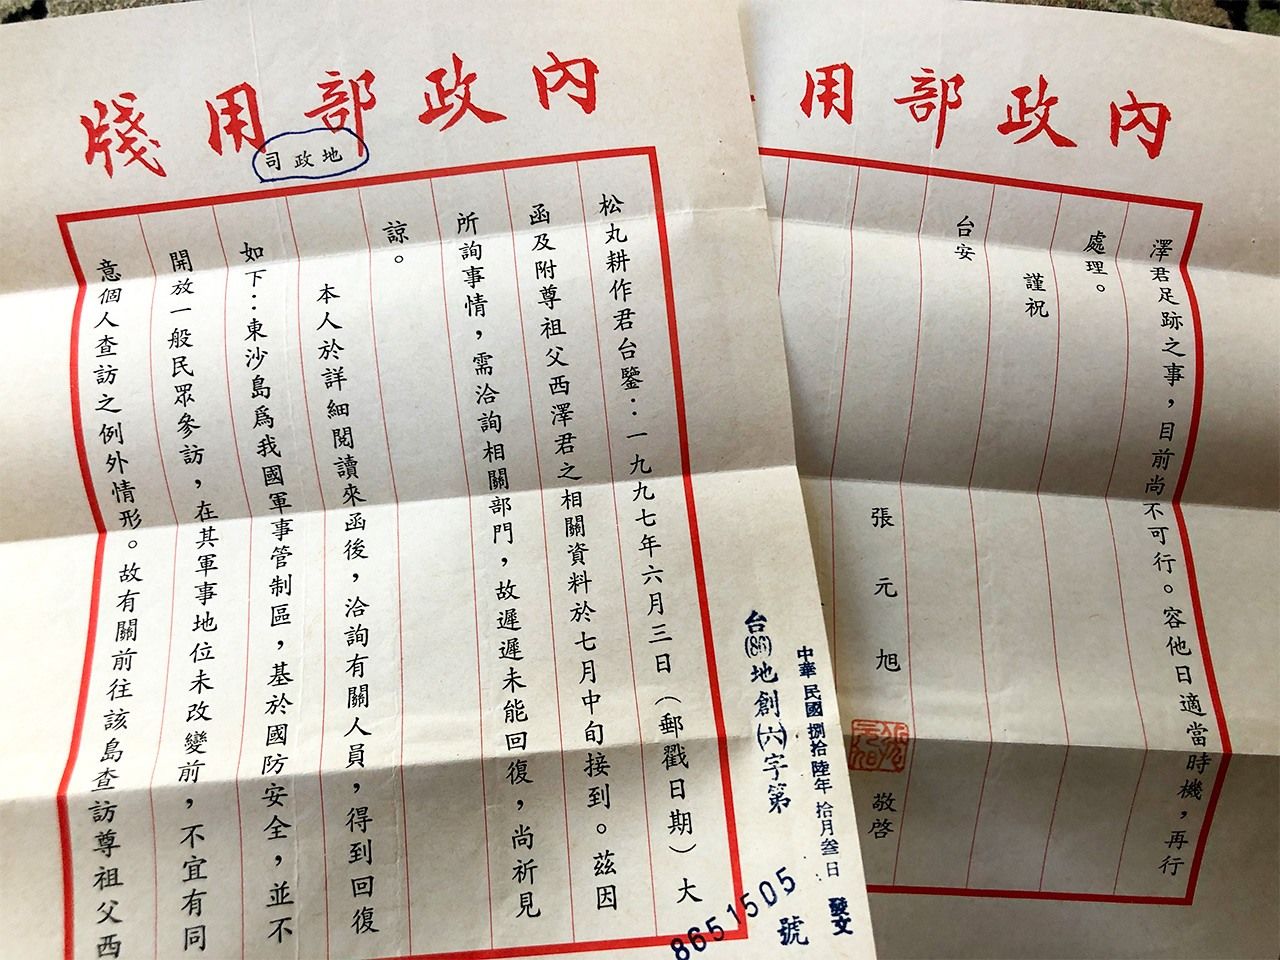 內政部用牋
地政司
松丸耕作君台鑒：一九九七年六月三日（郵戳日期）大
函及附尊祖父西澤君之相關資料於七月中旬接到。茲因
所詢事情，需洽詢相關部門，故遲遲未能回復，尚祈見
諒。
本人於詳細閱讀來函後，洽詢有關人員，得到回復
如下：東沙島爲我國軍事管制區，基於國防安全，並不
開放一般民眾參訪，在其軍事地位未改變前，不宜有同
意個人查訪之例外情形。故有關前往該島查訪尊祖父西
內政部用
澤君足跡之事，目前尚不可行。容他日適當時機，再行
處理。
謹祝
台安
張元旭
敬啓
中華民國捌拾陸年拾月叁日發文
台(86)地創(六)字第8651505號